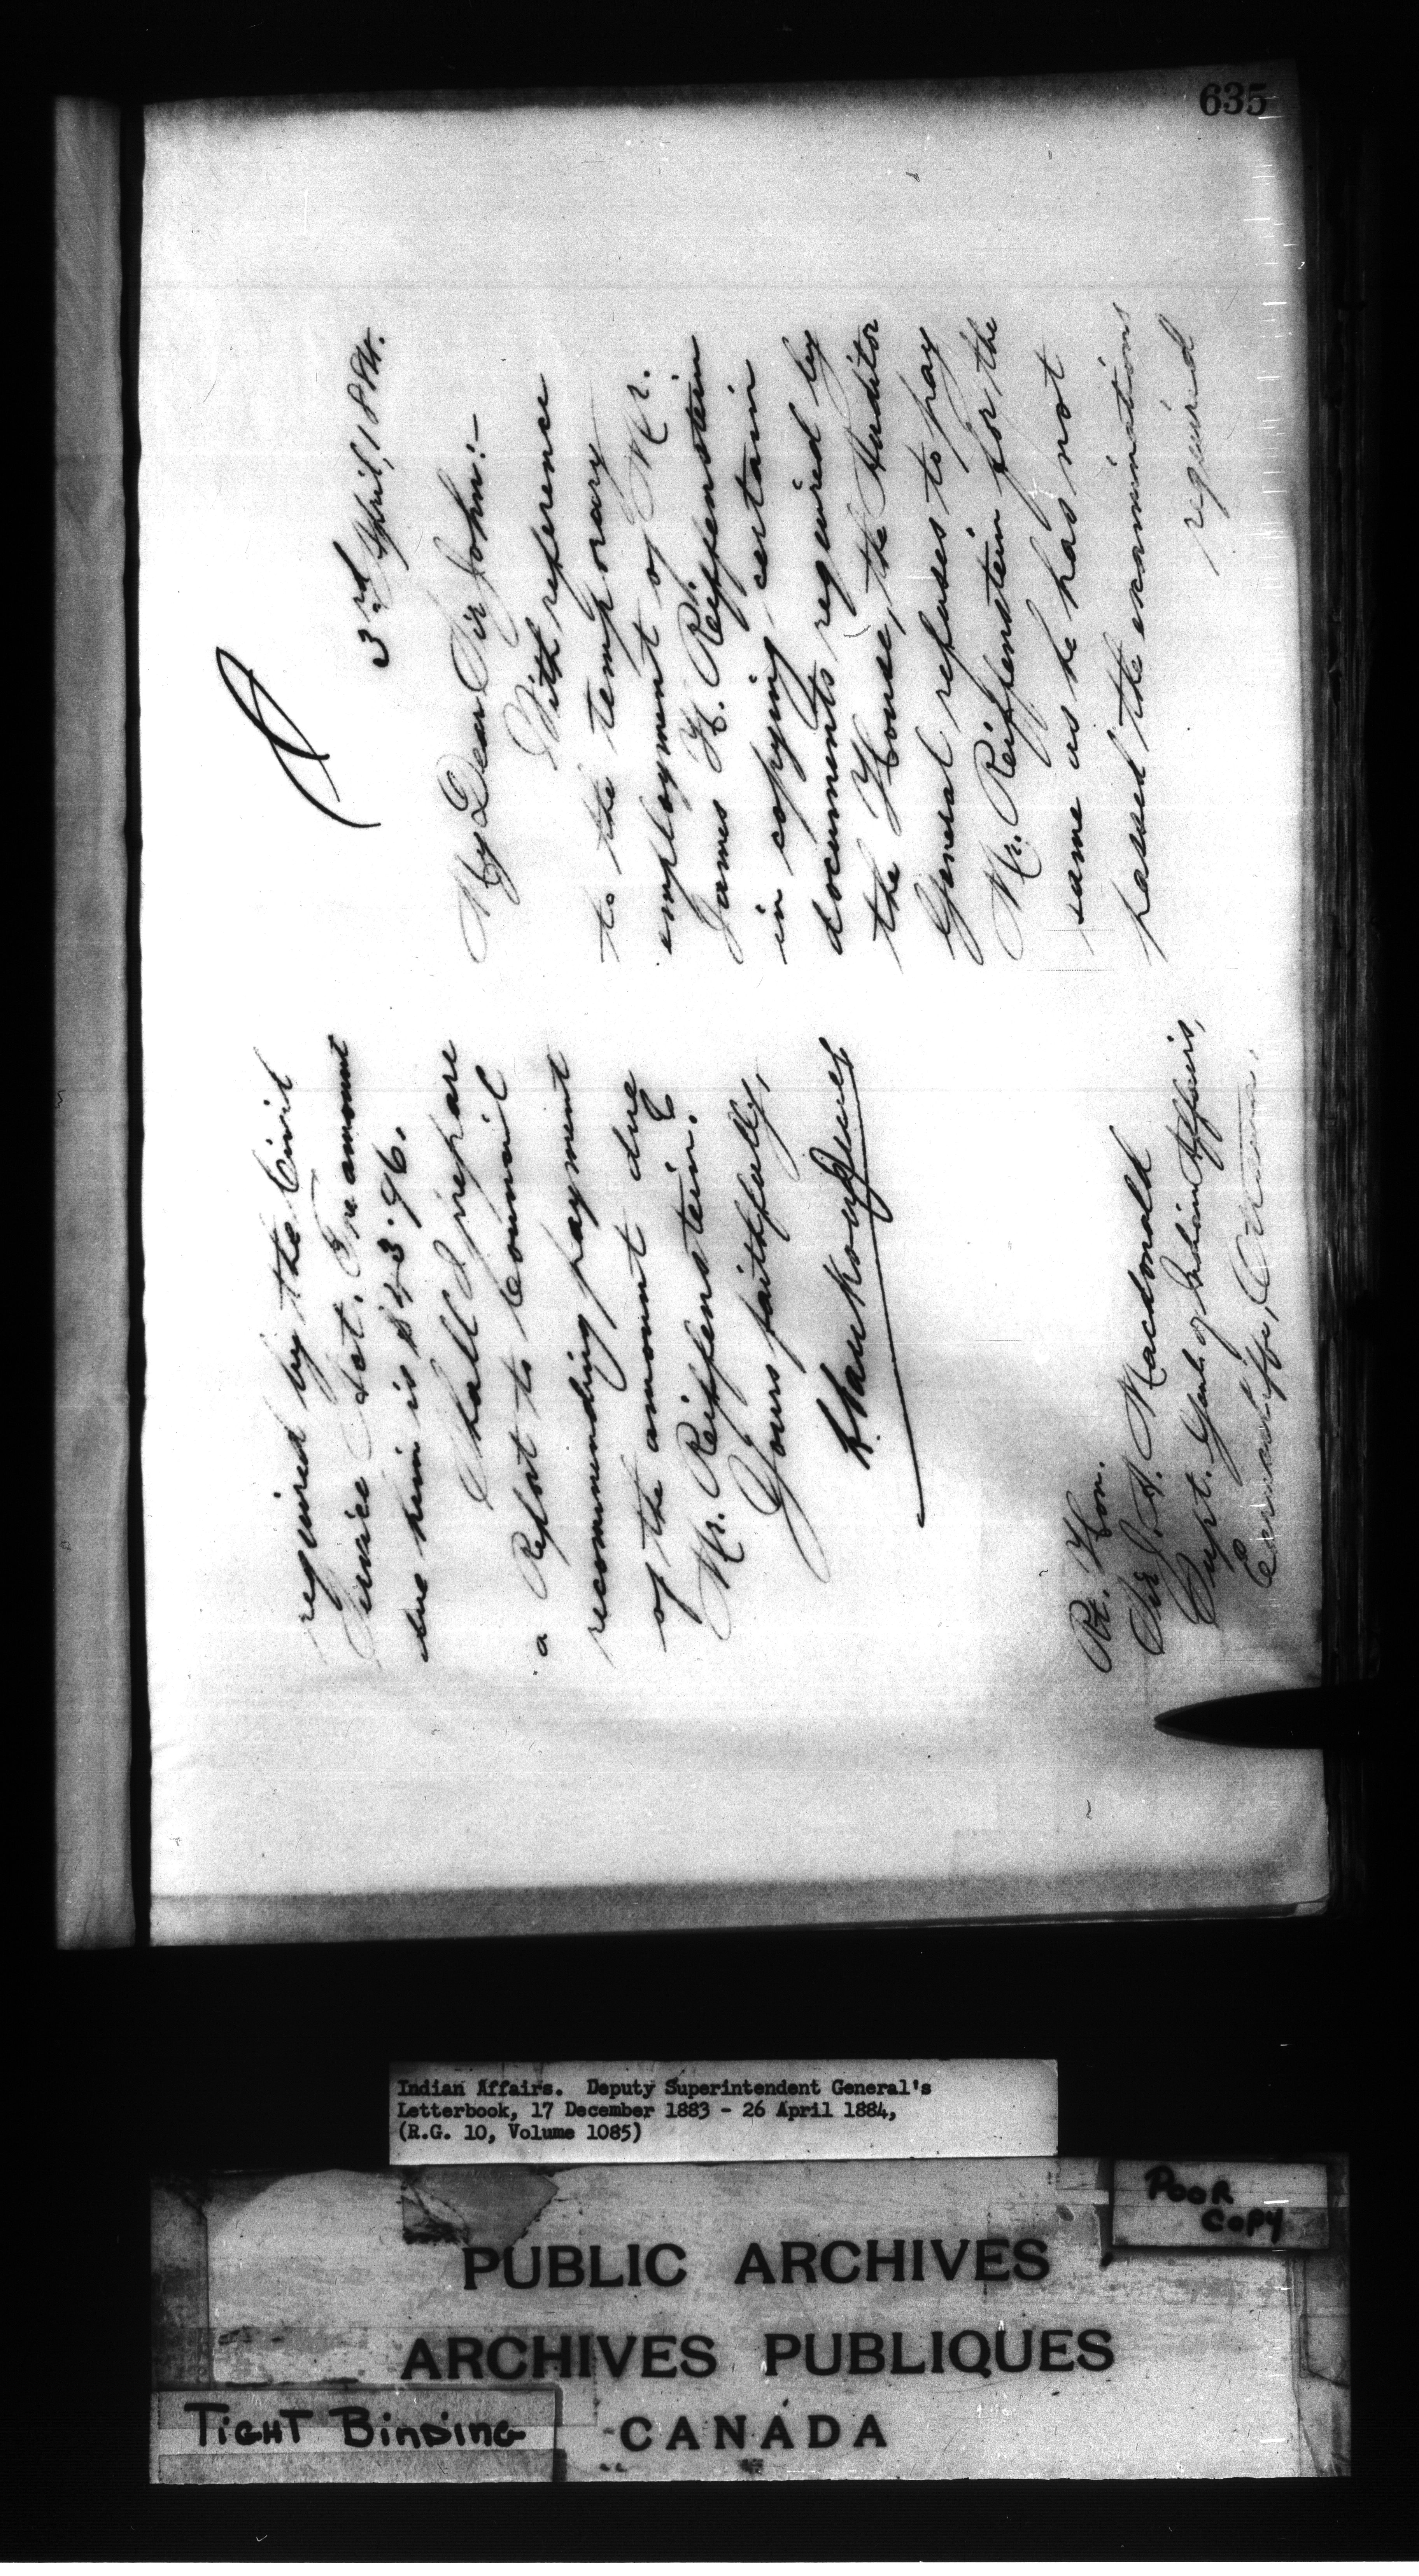 635
3rd April, 1884.
My Dear Sir John:-
With reference
to the temporary
employment of Mr.
James H. Reiffenstein
in copying certain
documents required by
the House, the Auditor
General refuses to pay
Mr. Reiffenstein for the
same as he has not
passed the examinations
required
required by the Civil
Service Act. The amount
due him is
Shall I prepare
a Report to Council
recommending payment
of the amount due
Mr. Reiffenstein.
Yours faithfully,
L. VanKoughnet
Rt. Hon.
Sir J. A. Macdonald
Supt. Genl. of Indian Affairs,
Earnscliffe, Ottawa.
Indian Affairs. Deputy Superintendent General's
Letterbook, 17 December 1883 - 26 April 1884,
(R.G. 10, Volume 1085)
POOR
COPY
PUBLIC ARCHIVES
ARCHIVES PUBLIQUES
CANADA
TIGHT BINDING